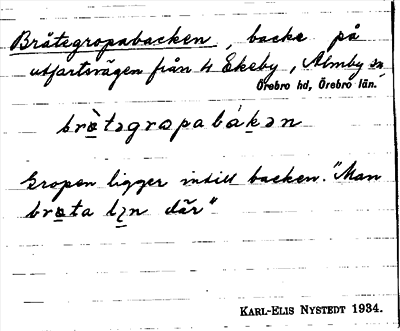 Bråtegropabacken, backe på
utfartsvägen från 4 Ekeby, Almby sn,
Örebro hd, Örebro län.
bròtəgrapabákən
Gropen ligger intill backen. "Man
brota lin där".
KARL-ELIS NYSTEDT 1934.